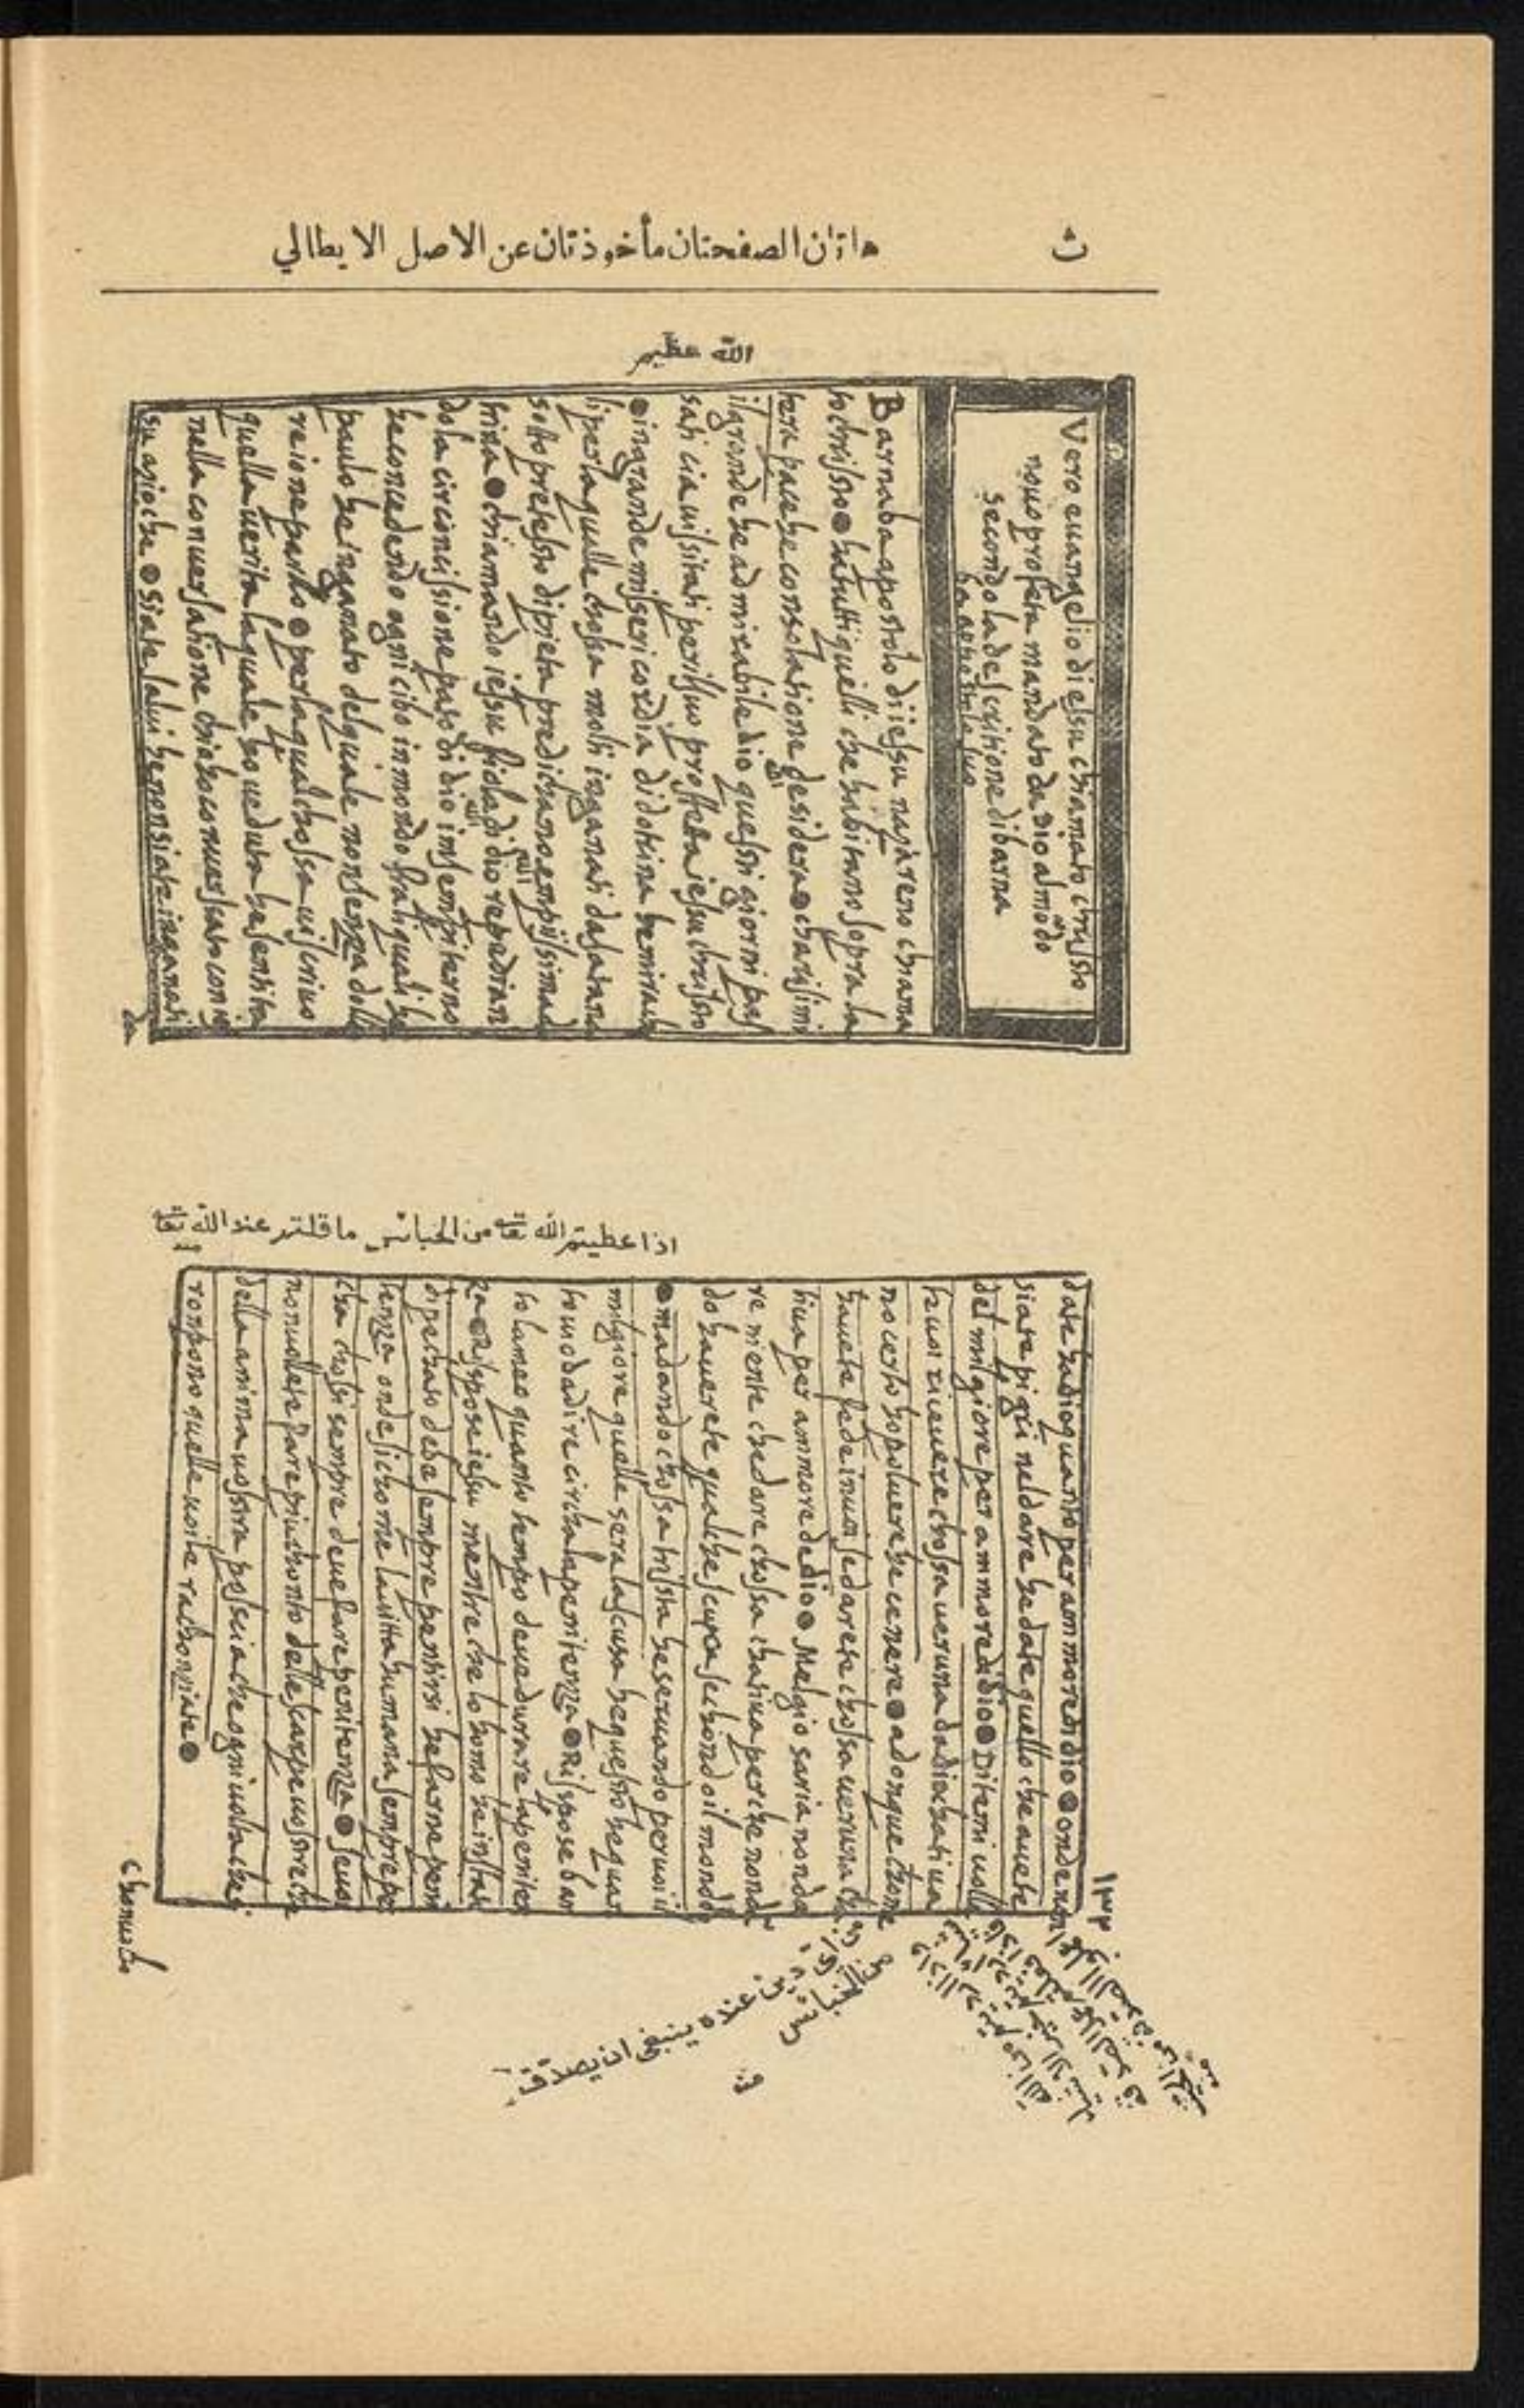 ث
هاتان الصفحتان مأخوذتان عن الاصل الايطالي
الله عظيم
Vero euangelio di essu chiamato chrissto
nouo profeta mandato da Dio al mōdo
secondo la descritione di barna
ba appostolo suo
Barnaba apostolo di iessu nazareno chiama
to chrissto ● ha tutti quelli che habitano sopra la
tera pace he consolatione desidera ● charisimi
il grande he admirabile dio quessti giorni pas
sati cia uissitati per il suo profeta iessu chrissto
● in grande misericordia di dotrina he miracho
li per la qualle chossa molti inganati da satana
sotto pretessto di pieta predichano empiissima do
trina ● chiamando iessu fiolo di dio repudian
do la circoncissione pato di dio in sempiterno
he concedendo ogni cibo inmondo fra li quali he
paulo he inganato del quale non senza dollo
re io ne parlo ● per la qual chossa uì scriuo
quella uerita la quale ho ueduta he sentita
nella conuersatione che io ho conuersato con ie
su azio che ● Siate salui he non siate inganati
da
الله
الله
الله
اذا عطيتم الله تعا من الخبائس ما قلتم عند الله تعا
منه
date ha dio quanto per ammore di dio ● onde non
siate pigri nel dare he date quello che auete
del milgiore per ammore di dio ● Ditemi uolle
te uoi riceuere chossa ueruna da dio chatiua
no certo ho poluere he cenere ● adonque chome
hauete fede in uoi se darete chossa ueruna cha
tiua per ammore de dio ● Melgio saria non da
re niente che dare chossa chatiua perche non dā
do hauerete qualche scussa sechondo il mondo
● ma dando chossa trissta he seruando per uoi il
milgiore quelle sera la scusa he quessto he quan
to uì ho da dire circha la penitenza ● Risspose bar
tolameo quanto tempo deue durare la peniten
za ● Risspose iesu mentre che lo homo he in statto
di pechato debe sempre pentirsi he farne peni
tenza onde sichome la uitta humana sempre pe
cha chossi sempre deue fare penitenza ● se uoi
non uollete fare piu chonto delle scarpe uosstre che
della anima uosstra possia che ogni uolta che si
rompono quelle uoi le rachonziate ●
chonuocho
١٣٣
من الخبائس
دين عنده ينبغى ان يصدّق
منه